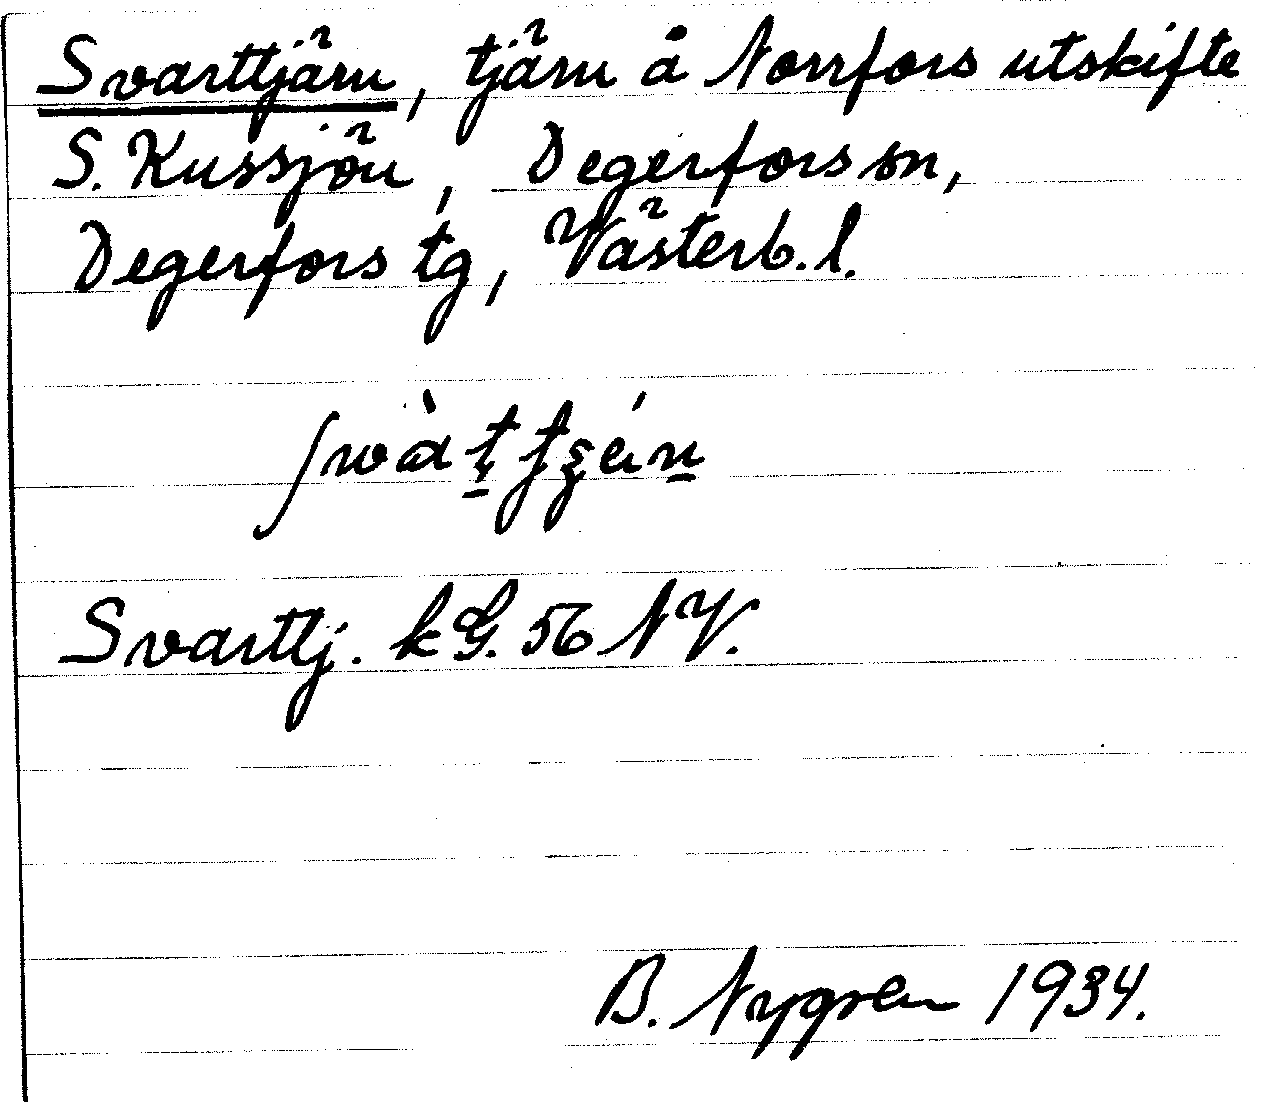 Svarttjärn, tjärn å Norrfors utskifte
S. Kussjön, Degerfors sn,
Degerfors tg, Västerb. l.
Svarttj. kG. 56 NV.
B. Nygren 1934.